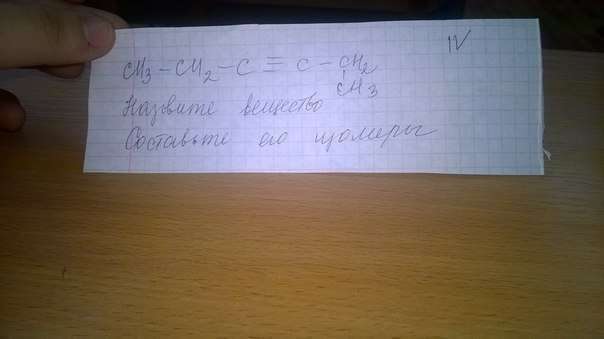 IV
CH3 – CH2 – C ≡ C – CH2
CH3
Назвите вещество
Составьте его изомеры